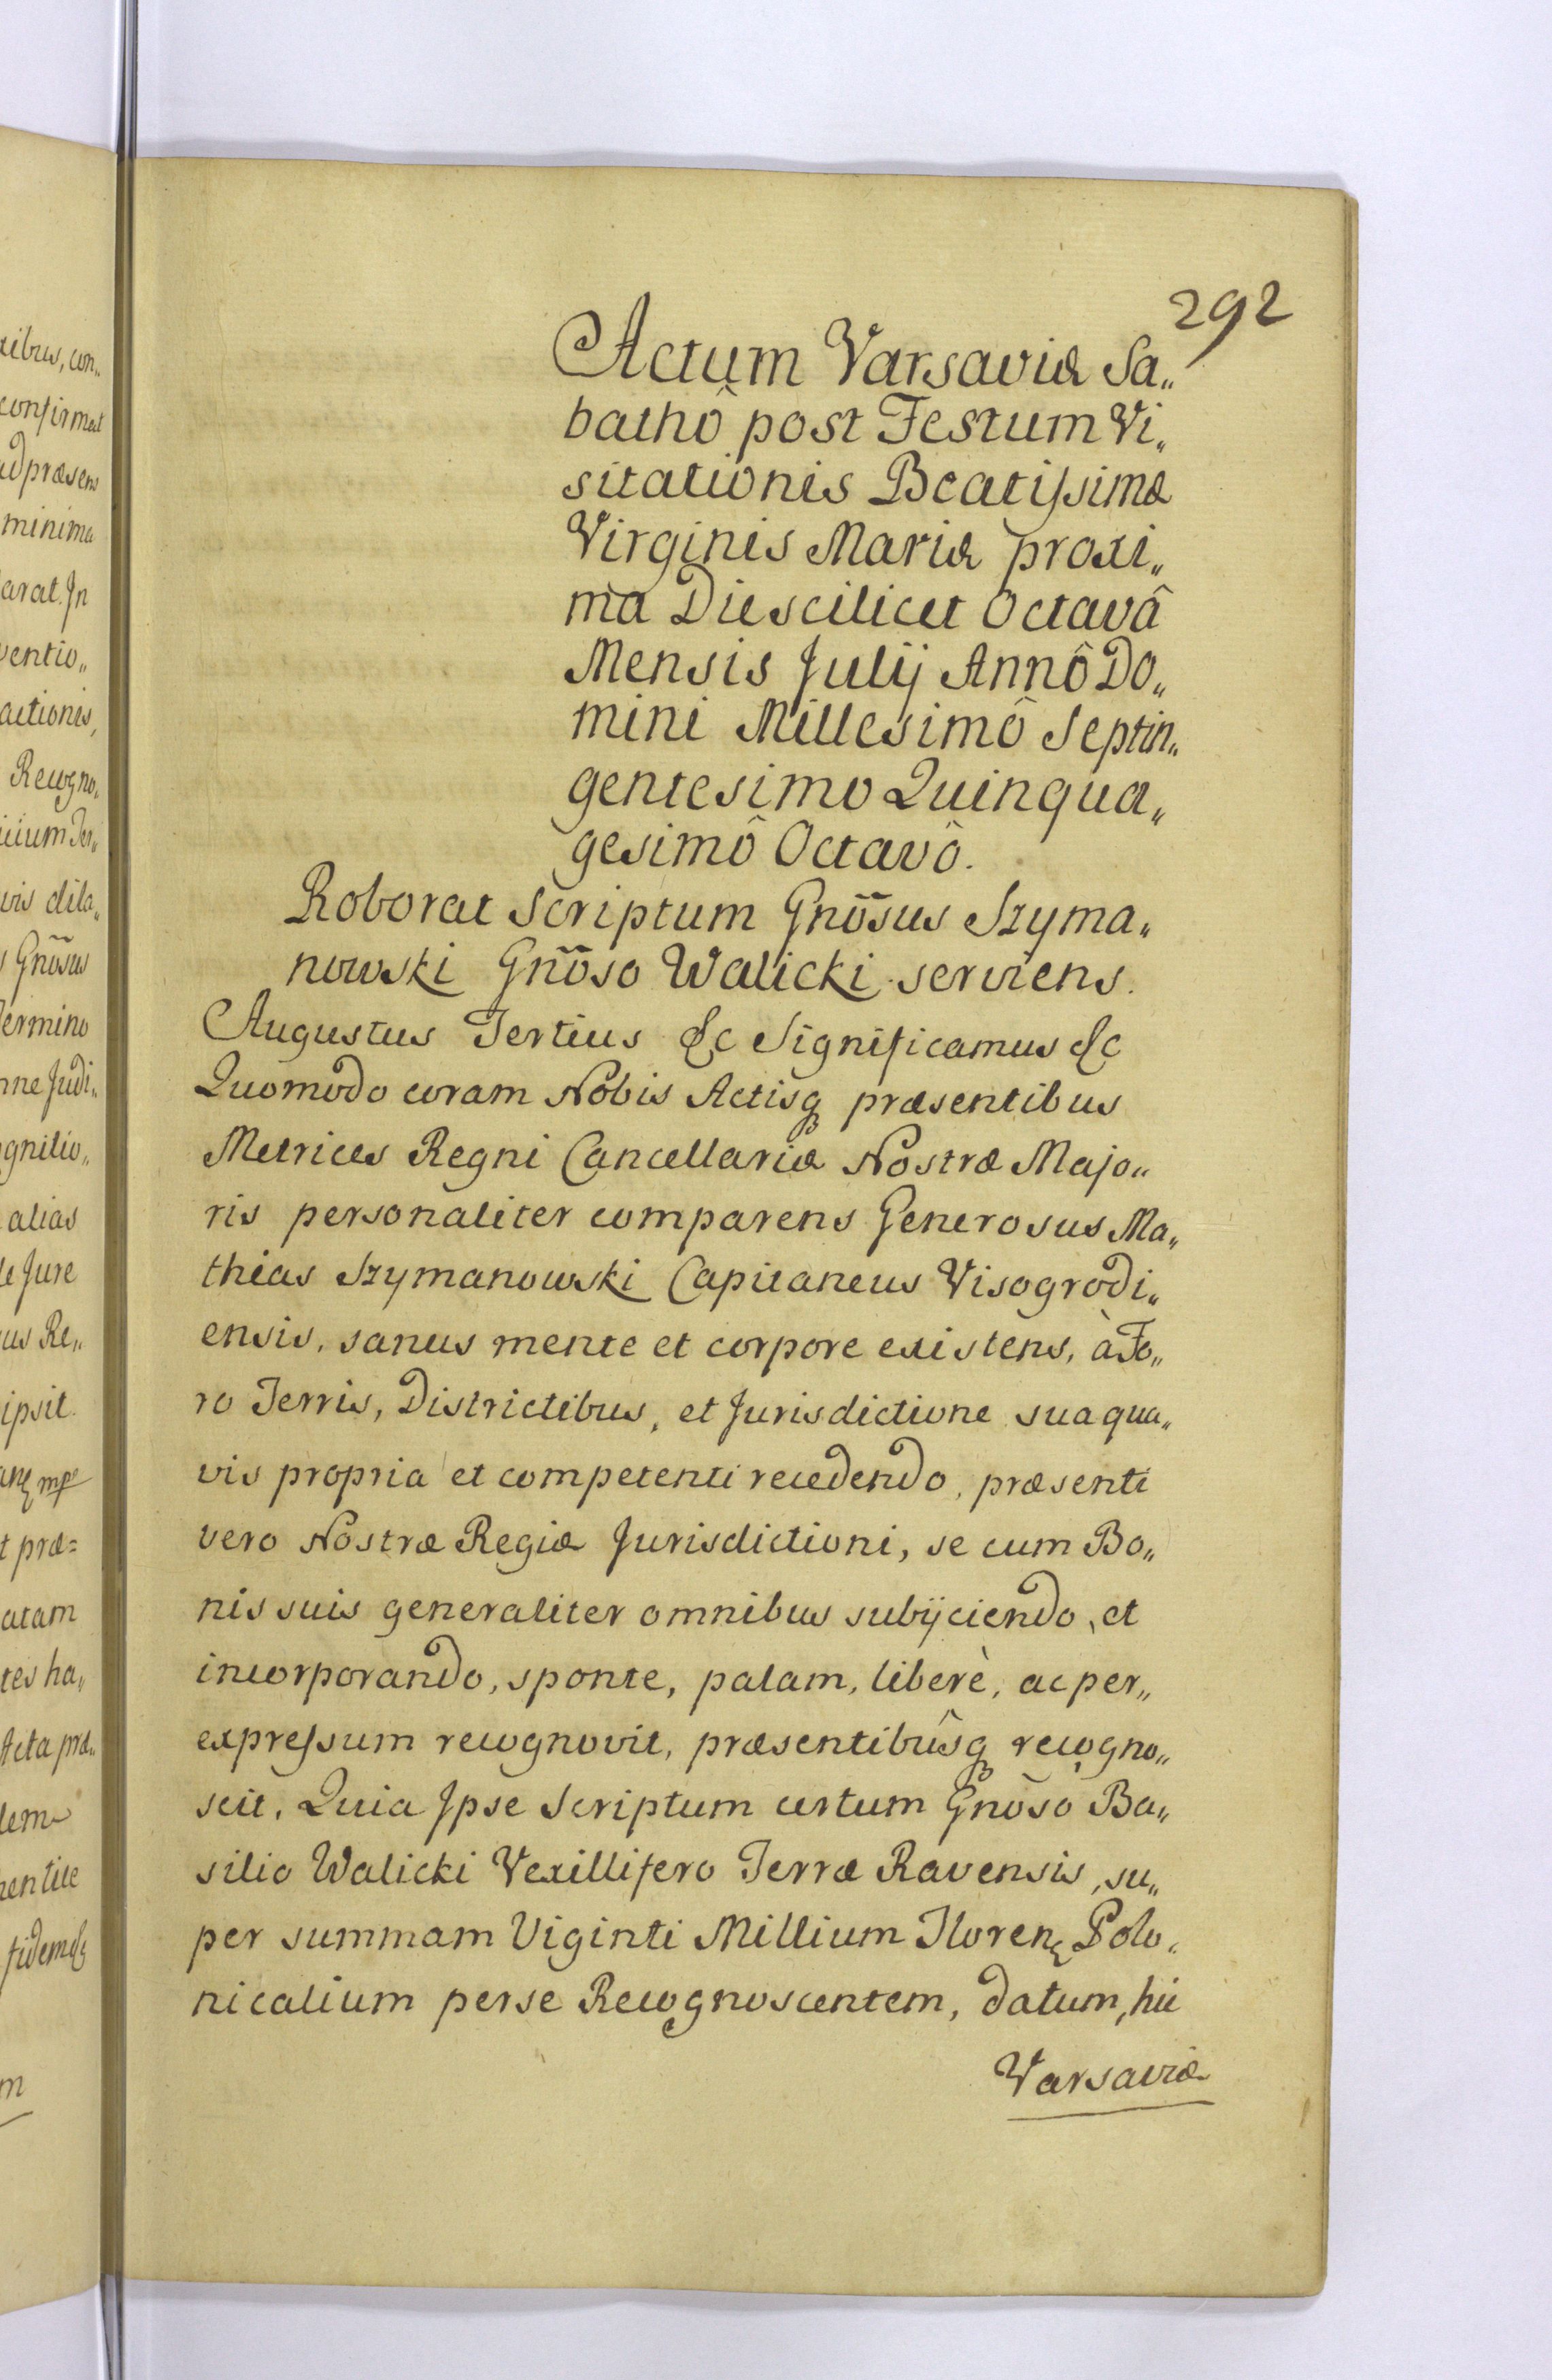 292
Actum Varsaviæ Sa„
bathô post Festum Vi„
sitationis Beatissimæ
Virginis Mariæ proxi„
ma Die scilicet Octavâ
Mensis Julij Annô Do„
mini Millesimô Septin„
gentesimo Quinqua„
gesimô Octavô.
Roborat Scriptum Gnõsus Szyma„
nowski Gnõso Walicki serviens.
Augustus Tertius &c Significamus &c
Quomodo coram Nobis Actisq præsentibus
Metrices Regni Cancellariæ Nostræ Majo„
ris personaliter comparens Generosus Ma„
thias Szymanowski Capitaneus Visogrodi„
ensis, sanus mente et corpore existens, à Fo„
ro Terris, Districtibus, et Jurisdictione sua qua„
vis propria et competenti recedendo, præsenti
vero Nostræ Regiæ Jurisdictioni, se cum Bo„
nis suis generaliter omnibus subijciendo, et
incorporando, sponte, palam, liberè, ac per„
expressum recognovit, præsentibûsq recogno„
scit, Quia Ipse Scriptum certum Gnõso Ba„
silio Walicki Vexillifero Terræ Ravensis, su„
per summam Viginti Millium Floren Polo„
nicalium per se Recognoscentem, datum, hic
Varsaviæ